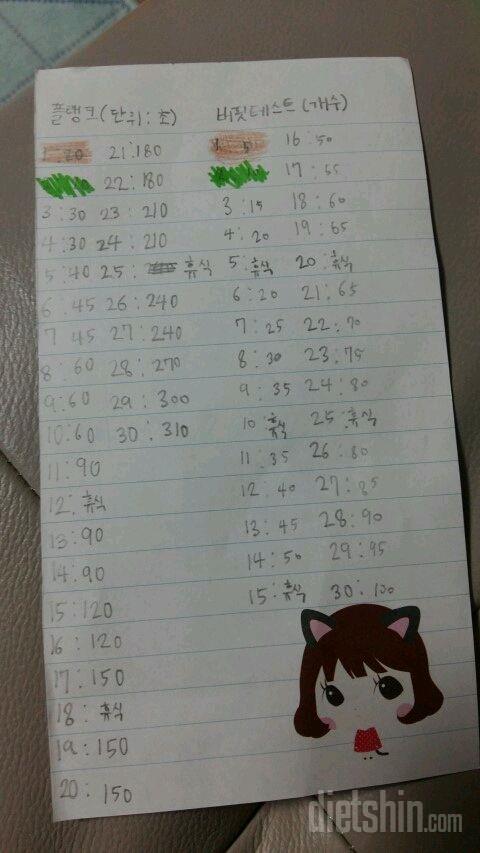 플랭크(단위:초) 버핏테스트(개수)
1:20 21:180 1: 5 16:50
22:180 17:55
3:30 23:210 3:15 18:60
4:30 24:210 4:20 19:65
5:40 25: 휴식 5:휴식 20:휴식
6:45 26:240 6:20 21:65
7 45 27:240 7:25 22:70
8:60 28:270 8:30 23:75
9:60 29:300 9:35 24:80
10:60 30:310 10:휴식 25:휴식
11:90 11:35 26:80
12:휴식 12:40 27:85
13:90 13:45 28:90
14:90 14:50 29:95
15:120 15:휴식 30:100
16:120
17:150
18:휴식
19:150
20:150
dietshin.com